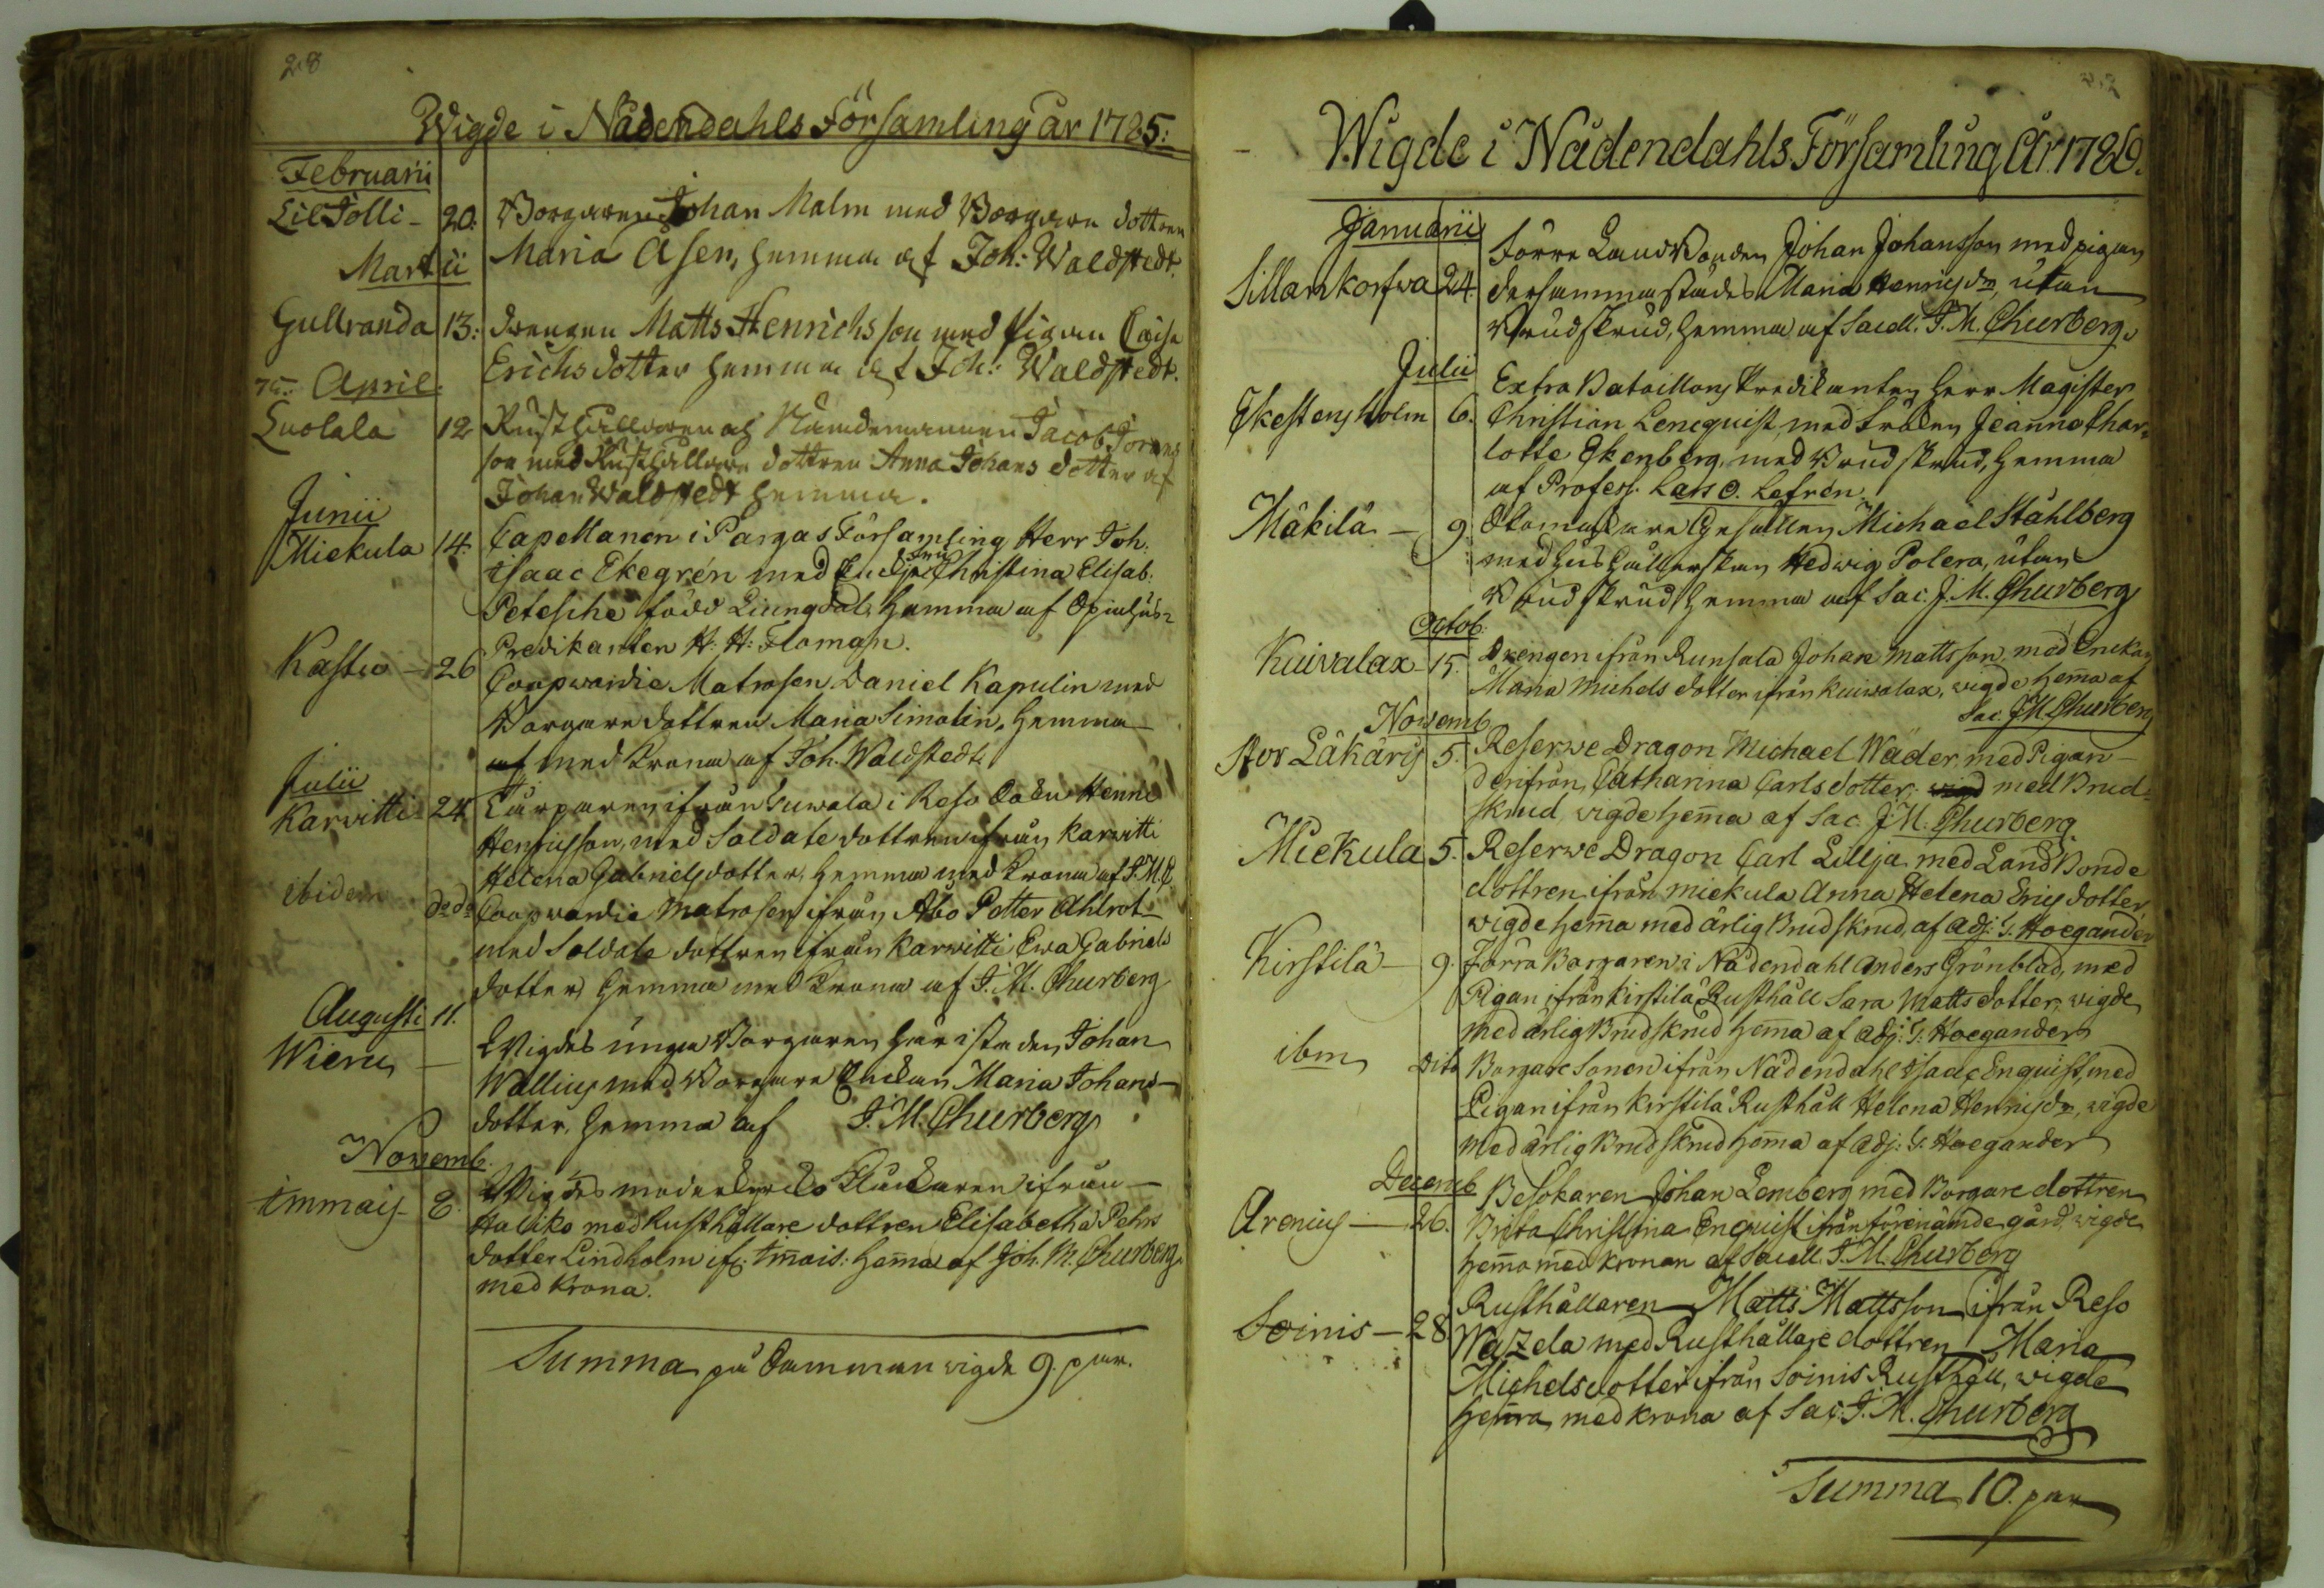 28
Wigde i Nådendahls Församling år 1785:
Februarii
Lil Tolli - 20: Borgaren Johan Malm med Borgare dottren
Maria Asen, hemma af Joh: Waldstedt.
Martii
Gullranda 13: drengen Matts Henrichsson med Pigan Caisa
Erichsdotter hemma af Joh: Waldstedt.
April
Luolala 12 Rusthållaren och Nämdemannen Jacob Jörans
son med Rusthållare dottren Anna Johans dotter af
Johan Waldstedt hemma.
Junii
Miekula 14. Capellanen i Pargas Församling Herr Joh:
Isaac Ekegrén med Enckje fru Christina Elisab:
Petesche född Liungdal, hemma af Spinhus-
Predikanten H: H: Floman.
Kastu - 26 Coopvardie Matrosen Daniel Kapulin med
Borgare dottren Maria Simolin, hemma
af med Krona af Joh. Waldstedt.
Julii
Karvitti 24 Torparen ifrån Luwala i Reso Socken Henric
Henricsson, med Soldate dottren ifrån Karvitti
Helena Gabrielsdotter, hemma med Krona af J. M. C
ibidem do do Coopvardie Matrosen ifrån Åbo Petter Ahlrot
med Soldate dottren ifrån Karwitti Ewa Gabriels
dotter, hemma med Krona af J. M. Churberg
Augusti 11.
Wieru - Wigdes unga Borgaren här i staden Johan
Wallius med Borgare Enckan Maria Johans-
dotter, hemma af J. M. Churberg
Novemb.
Immais - 8. Wigdes Klockaren ifrån
Haliko med Rusthållare dottren Elisabetha Pehrs
dotter Lindholm ifr: Immais: hemma af Joh. M. Churberg
med Krona.
Summa på Samman wigde 9. par.
Wigde i Nådendahls Församling År 1786.
Januarii
Sillankorfwa 24. Förre LandBonden Johan Johansson med pigan
dersammastädes Maria Henricsdr, utan
Brudskrud, hemma af Sacell. J. M. Churberg.
Julii
Ekestensholm 6. Extra Bataillons Predikanten Herr Magister
Christian Lencquist, med fröken Jeanne Char-
lotte Ekenberg, med Brudskrud, hemma
af Profess. Lars O. Lefrén.
Mäkilä - 9. Skomakare Gesällen Michaël Ståhlberg
med hushållerskan Hedwig Polera, utan
Brudskrud hemma af Sac. J. M. Churberg
Octob.
Kuivalax - 15. Drengen ifrån Runsala Johan Mattsson, med Enckan
Maria Michels dotter ifrån Kuivalax, wigde hema af
Sac. J M Churberg
Novemb
Stor Läkäris 5. Reserwe Dragon Michael Wäder, med Pigan
derifrån, Catharina Carlsdotter, med Brud-
skrud, wigde hema af Sac. J. M. Churberg.
Miekula 5. Reserwe Dragon Carl Lillja med Land Bonde
dottren ifrån Miekula Anna Helena Ericsdotter,
wigde hema med ärlig Brudskrud, af Adj: G. Hoegander
Kirstilä - 9. Förra Borgaren i Nådendahl Anders Grönblad, med
Pigan ifrån Kirstilä Rusthåll Sara Matts dotter, wigde
med ärlig Brudskrud hema af Adj: G: Hoegander
ibm dito Borgare Sonen ifrån Nådendahl Isaac Enquist, med
Pigan ifrån Kirstilä Rusthåll Helena Henricsdr, wigde
med ärlig Brudskrud hema af Adj: G. Hoegander
Decemb
Arenius - 26. Besökaren Johan Lemberg med Borgare dottren
Brita Christina Enquist ifrån förenämde gård, wigde
hema med Kronan af Sacell. J. M. Churberg
Soinis - 28 Rusthållaren Matts Mattsson ifrån Reso
med Rusthållare dottren Maria
Michelsdotter ifrån Soinis Rusthåll, wigde
hema, med krona af Sac: J. M. Churberg
Summa 10. par